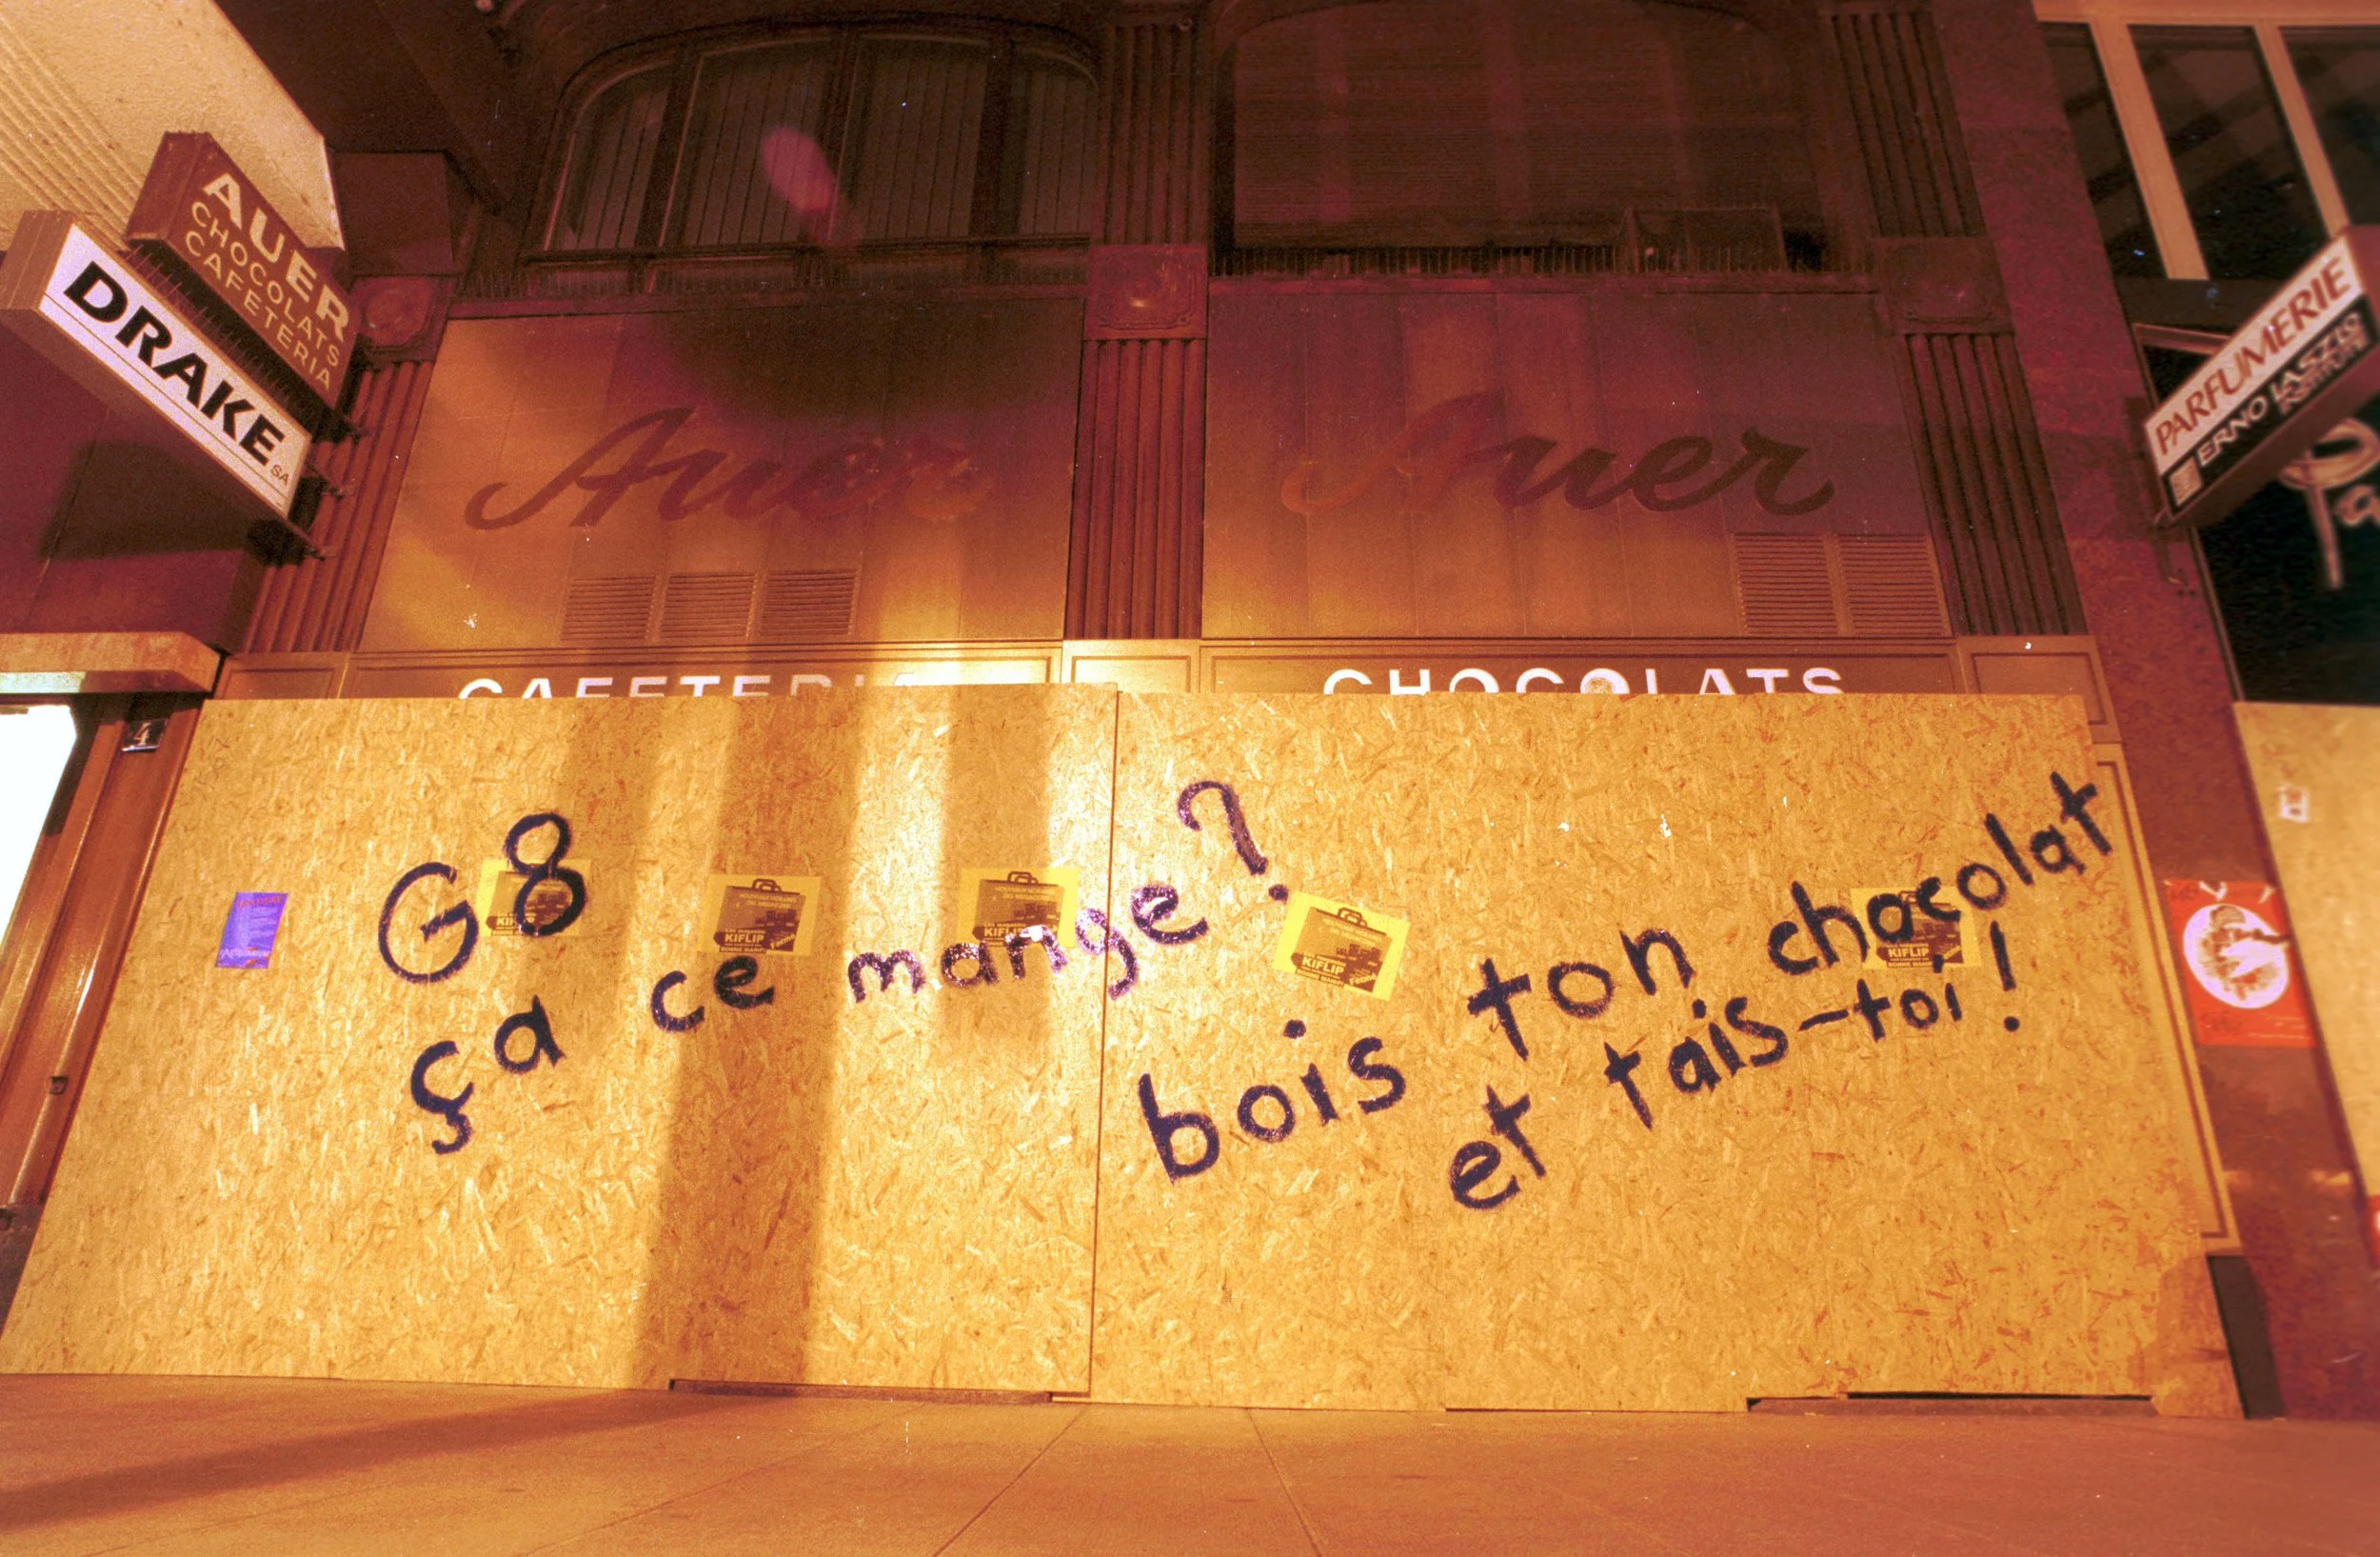 AUER
CHOCOLATS
CAFETERIA
DRAKE SA
Auer
Auer
PARFUMERIE
ERNO LASZLO
INSTITUTE
CAFETERIA
CHOCOLATS
4
G8
ça ce mange ?
bois ton chocolat
et tais-toi !
KIFLIP
KIFLIP
KIFLIP
KIFLIP
KIFLIP